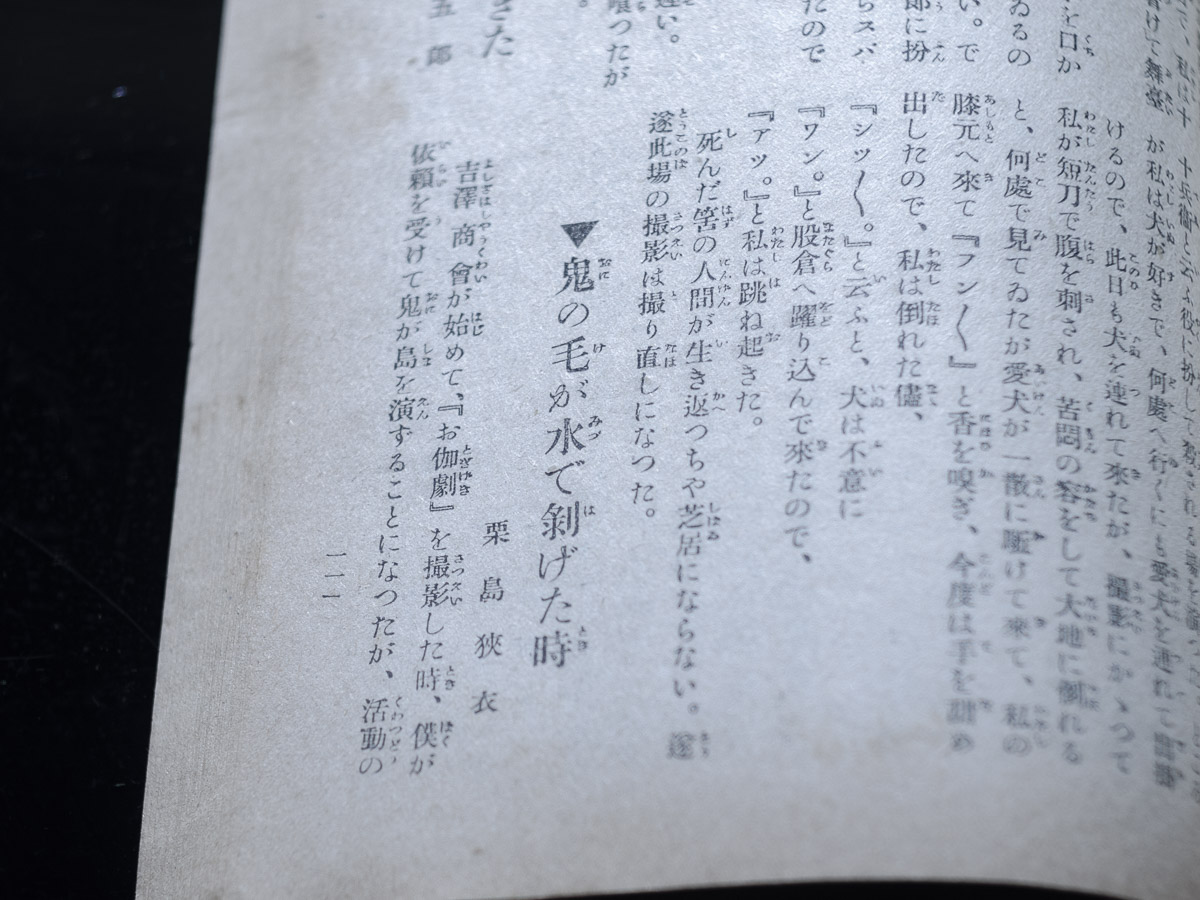 て、私は十
舞臺
を口か
ゐるの
い。で
郎に扮
らスバ
たので
違い。
喰つたが
さた
五郎
十兵衛と云ふ役に扮して殺される
が私は犬が好きで、何處へ行くにも愛犬を連れて
けるので、此日も犬を連れて來たが、撮影にかゝつて
私が短刀で腹を刺され、苦悶の容をして大地に倒れる
と、何處で見てゐたが愛犬が一散に驅けて來て、私の
膝元へ來て『フン〱』と香を嗅ぎ、今度は手を甜め
出したので、私は倒れた儘、
『シツ〱。』と云ふと、犬は不意に
『ワン。』と股倉へ躍り込んで來たので、
『アツ。』と私は跳ね起きた。
死んだ筈の人間が生き返つちや芝居にならない。遂
遂此場の撮影は撮り直しになつた。
▼鬼の毛が水で剝げた時
栗島狹衣
吉澤商會が始めて、『お伽劇』を撮影した時、僕が
依賴を受けて鬼が島を演ずることになつたが、活動の
一一一